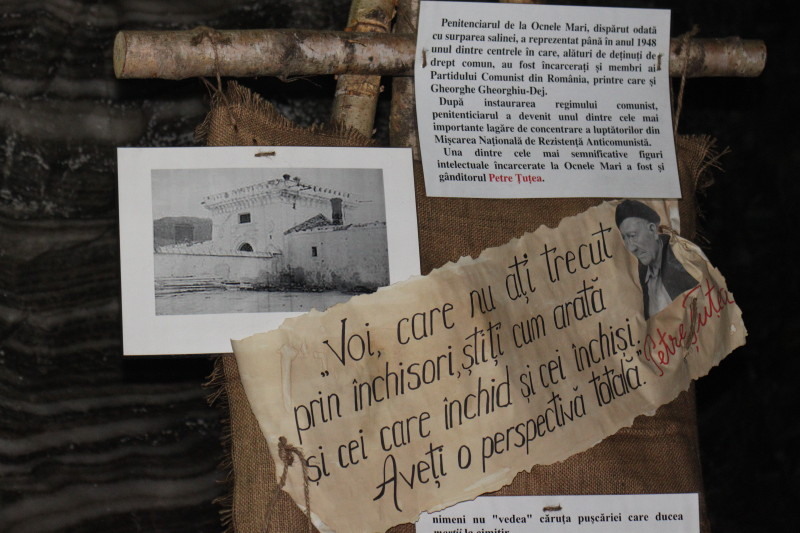 Penitenciarul de la Ocnele Mari, dispărut odată
cu surparea salinei, a reprezentat până în anul 1948
unul dintre centrele în care, alături de deținuți de
drept comun, au fost încarcerați și membri ai
Partidului Comunist din România, printre care și
Gheorghe Gheorghiu-Dej.
După instaurarea regimului comunist,
penitenticiarul a devenit unul dintre cele mai
importante lagăre de concentrare a luptătorilor din
Mișcarea Națională de Rezistență Anticomunistă.
Una dintre cele mai semnificative figuri
intelectuale încarcerate la Ocnele Mari a fost și
gânditorul Petre Țuțea.
„Voi, care nu ați trecut
prin închisori, știți cum arată
și cei care închid și cei închiși.
Aveți o perspectivă totală."
Petre Țuțea
nimeni nu "vedea" căruța pușcăriei care ducea
morții la cimitir